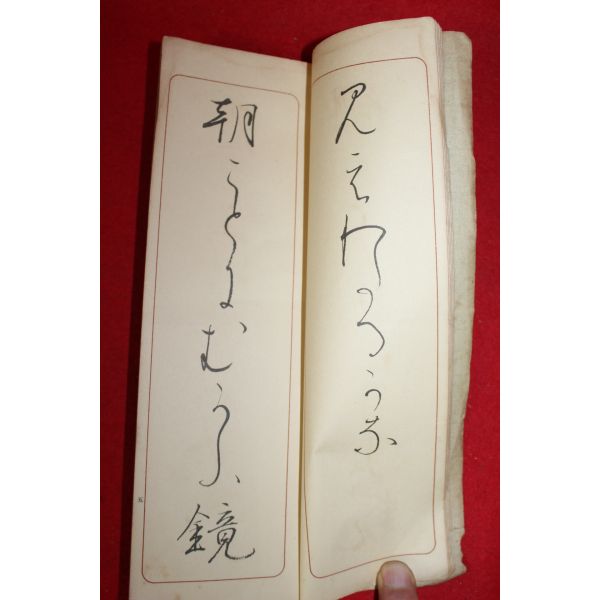 見えわたるかな
朝ことにむかふ鏡
五